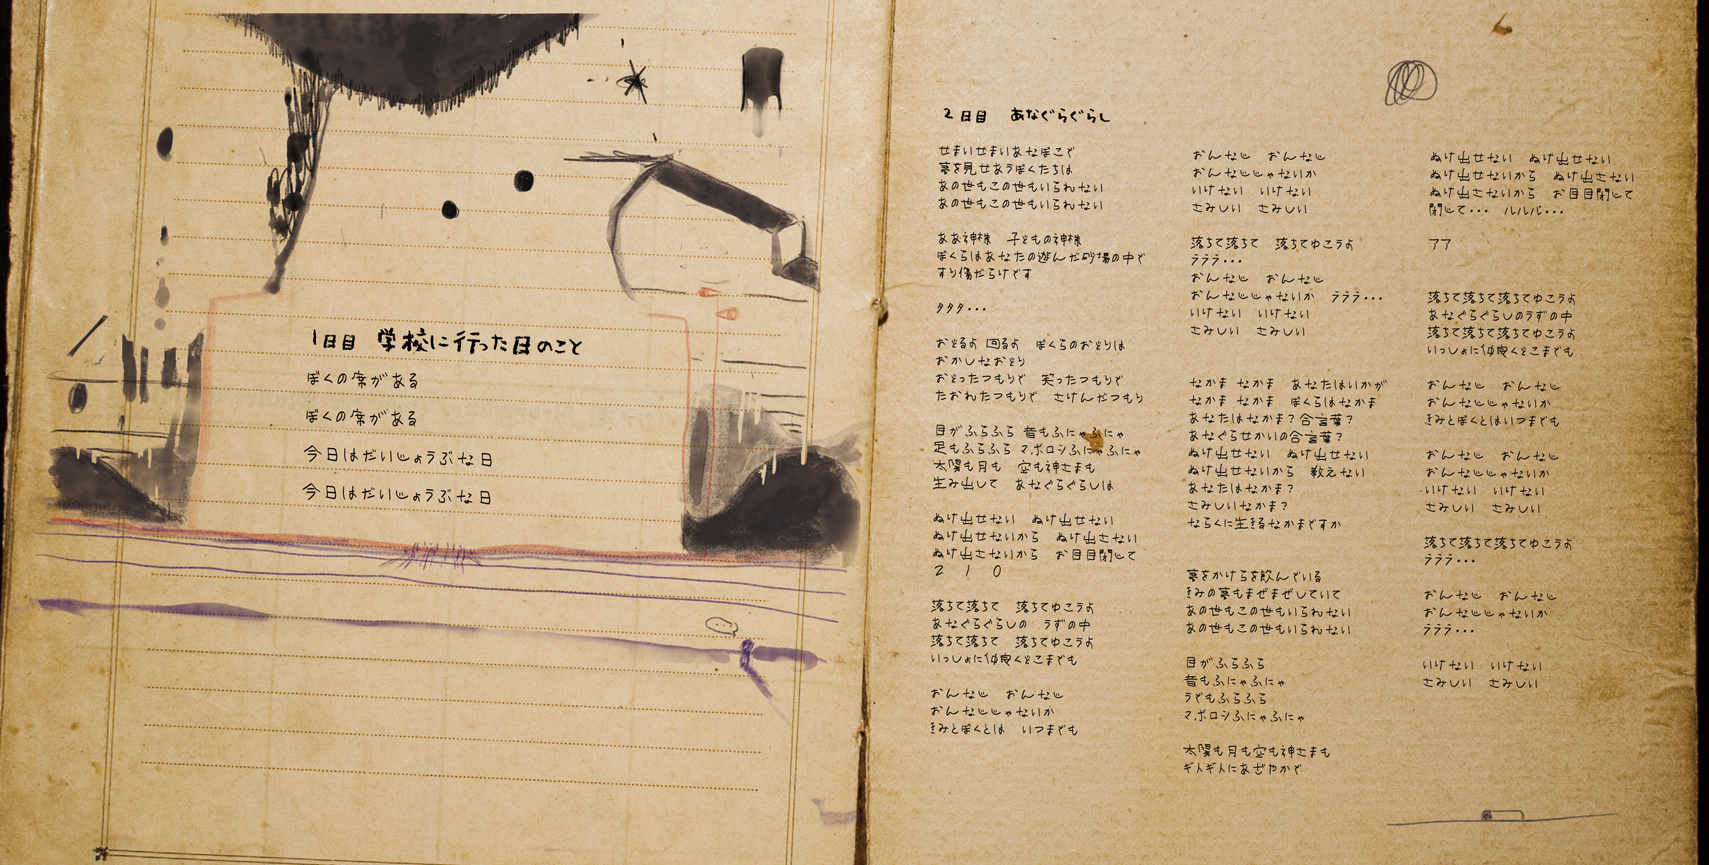 1日目 学校に行った日のこと
ぼくの席がある
ぼくの席がある
今日はだいじょうぶな日
今日はだいじょうぶな日
2日目 あなぐらぐらし
せまいせまいあなぼこで
夢を見せあうぼくたちは
あの世もこの世もいられない
あの世もこの世もいられない
ああ神様 子どもの神様
ぼくらはあなたの遊んだ砂場の中で
すり傷だらけです
タタタ・・・
おどるよ 回るよ ぼくらのおどりは
おかしなおどり
おどったつもりで 笑ったつもりで
たおれたつもりで さけんだつもり
目がふらふら 音もふにゃふにゃ
足もふらふら マボロシふにゃふにゃ
太陽も月も 空も神さまも
生み出して あなぐらぐらしは
ぬけ出せない ぬけ出せない
ぬけ出せないから ぬけ出さない
ぬけ出さないから お目目閉じて
2 1 0
落ちて落ちて 落ちてゆこうよ
あなぐらぐらしの うずの中
落ちて落ちて 落ちてゆこうよ
いっしょに仲良くどこまでも
おんなじ おんなじ
おんなじじゃないか
きみとぼくとは いつまでも
おんなじ おんなじ
おんなじじゃないか
いけない いけない
さみしい さみしい
落ちて落ちて 落ちてゆこうよ
ラララ・・・
おんなじ おんなじ
おんなじじゃないか ラララ・・・
いけない いけない
さみしい さみしい
なかま なかま あなたはいかが
なかま なかま ぼくらはなかま
あなたはなかま?合言葉?
あなぐらせかいの合言葉?
ぬけ出せない ぬけ出せない
ぬけ出せないから 教えない
あなたはなかま?
さみしいなかま?
ならくに生きるなかまですか
夢をかけらを飲んでいる
きみの夢もまぜまぜしていて
あの世もこの世もいられない
あの世もこの世もいられない
目がふらふら
音もふにゃふにゃ
うでもふらふら
マボロシふにゃふにゃ
太陽も月も空も神さまも
ギトギトにあざやかで
ぬけ出せない ぬけ出せない
ぬけ出せないから ぬけ出さない
ぬけ出さないから お目目閉じて
閉じて・・・ ルルル・・・
77
落ちて落ちて落ちてゆこうよ
あなぐらぐらしのうずの中
落ちて落ちて落ちてゆこうよ
いっしょに仲良くどこまでも
おんなじ おんなじ
おんなじじゃないか
きみとぼくとはいつまでも
おんなじ おんなじ
おんなじじゃないか
いけない いけない
さみしい さみしい
落ちて落ちて落ちてゆこうよ
ラララ・・・
おんなじ おんなじ
おんなじじゃないか
ラララ・・・
いけない いけない
さみしい さみしい